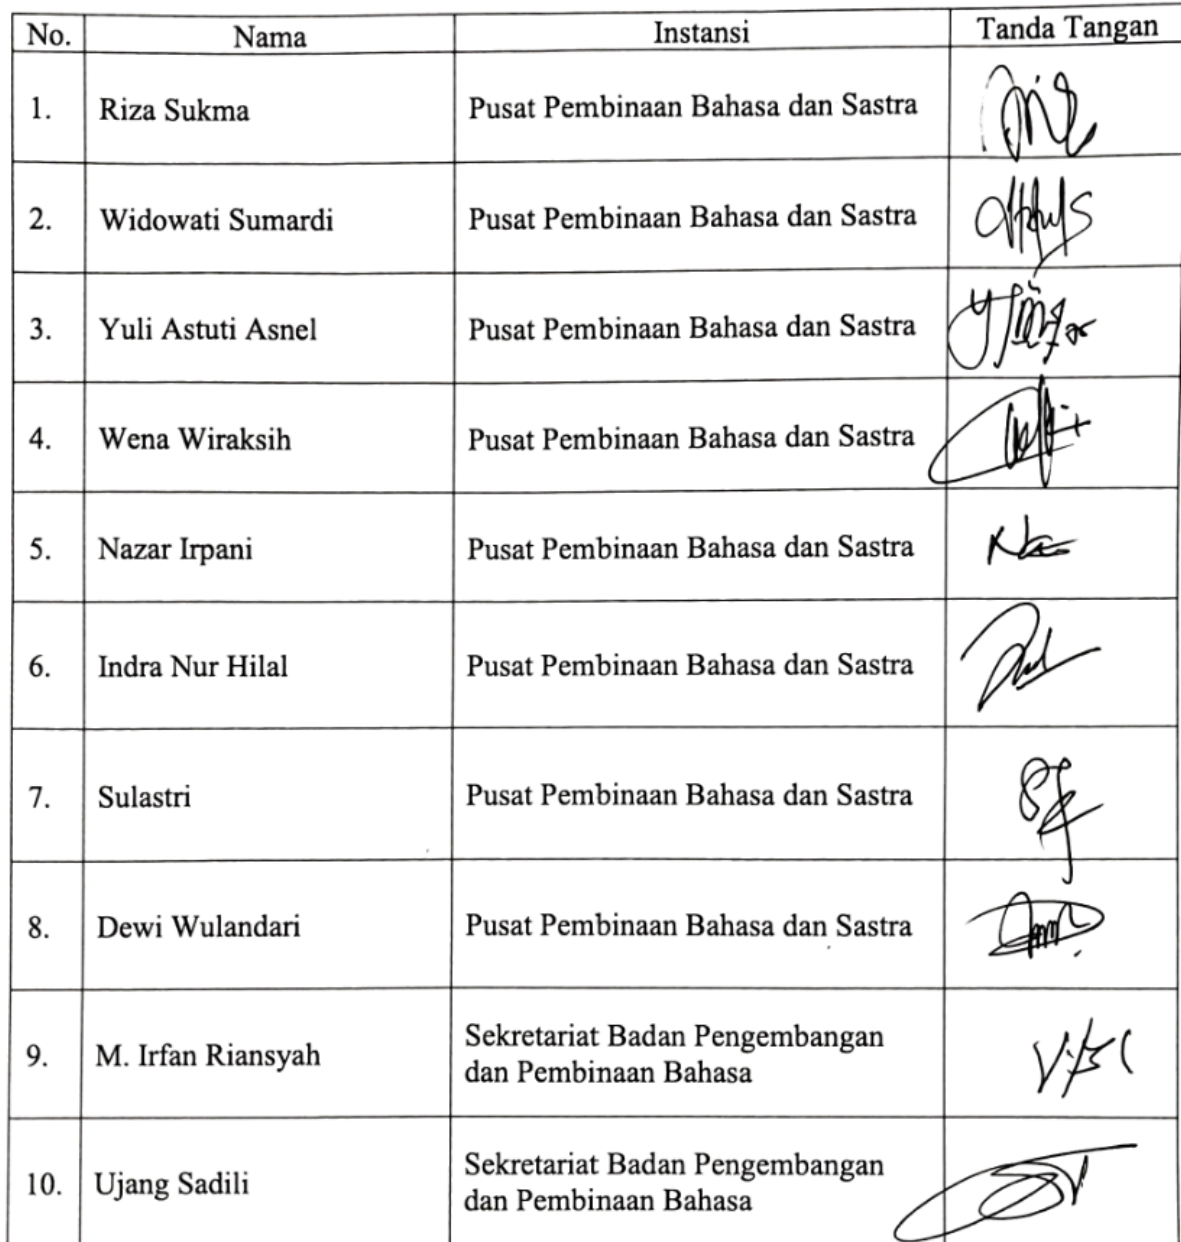 No. Nama Instansi Tanda Tangan
1. Riza Sukma Pusat Pembinaan Bahasa dan Sastra
2. Widowati Sumardi Pusat Pembinaan Bahasa dan Sastra
3. Yuli Astuti Asnel Pusat Pembinaan Bahasa dan Sastra
4. Wena Wiraksih Pusat Pembinaan Bahasa dan Sastra
5. Nazar Irpani Pusat Pembinaan Bahasa dan Sastra
6. Indra Nur Hilal Pusat Pembinaan Bahasa dan Sastra
7. Sulastri Pusat Pembinaan Bahasa dan Sastra
8. Dewi Wulandari Pusat Pembinaan Bahasa dan Sastra
9. M. Irfan Riansyah Sekretariat Badan Pengembangan
dan Pembinaan Bahasa
10. Ujang Sadili Sekretariat Badan Pengembangan
dan Pembinaan Bahasa